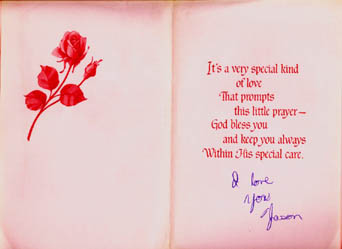 It's a very special kind
of love
That prompts
this little prayer—
God bless you
and keep you always
Within His special care.
I love
you
Jason